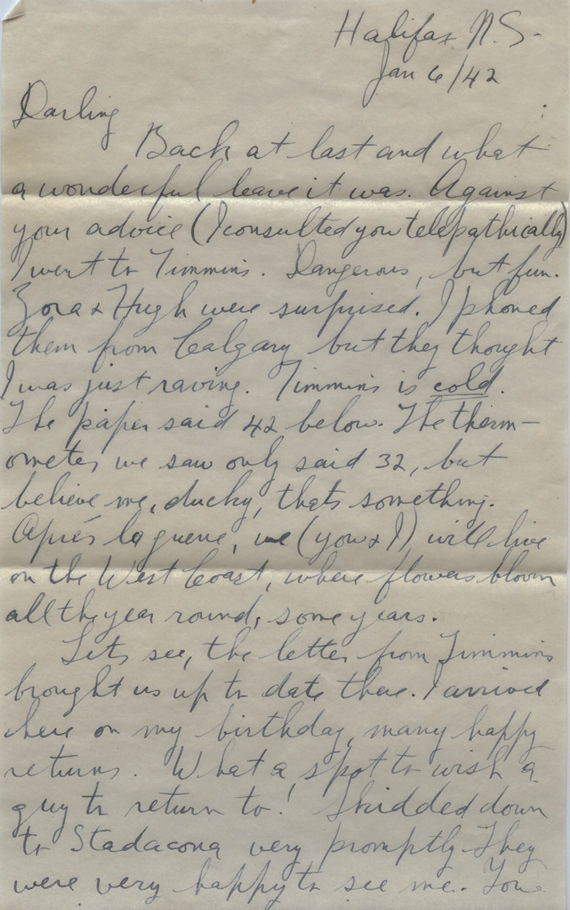 Halifax N.S.
Jan 6/42
Darling
Back at last and what
a wonderful leave it was. Against
your advice (I consulted you telepathically)
I went to Timmins. Dangerous, but fun.
Zora & Hugh were surprised. I phoned
them from Calgary but they thought
I was just raving. Timmins is cold.
The paper said 42 below. The therm-
ometer we saw only said 32, but
believe me, ducky, thats something.
Après la guerre, we (you & I) will live
on the West Coast, where flowers bloom
all the year round, some years.
Lets see, the letter from Timmins
brought us up to date there. I arrived
here on my birthday, many happy
returns. What a spot to wish a
guy to return to! Skidded down
to Stadacona very promptly. They
were very happy to see me. You